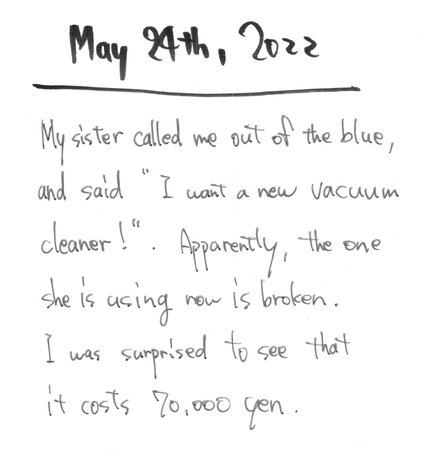 May 24th, 2022
My sister called me out of the blue,
and said " I want a new vacuum
cleaner!". Apparently, the one
she is using now is broken.
I was surprised to see that
it costs 70,000 yen.